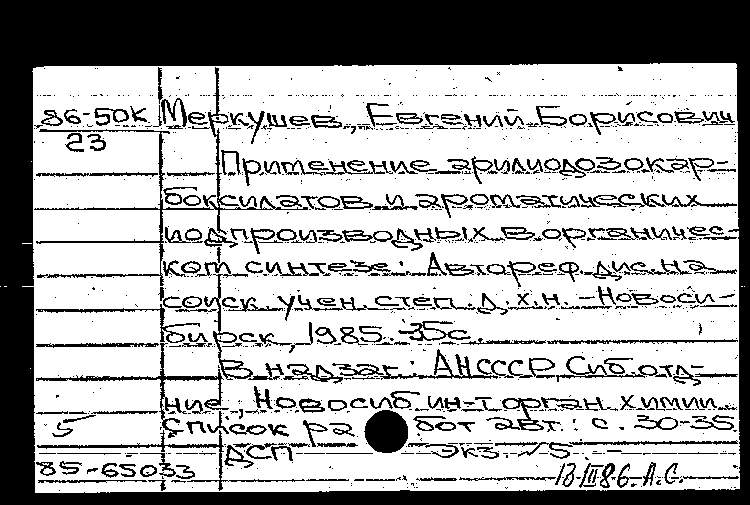 86-50к Меркушев, Евгений Борисович
23
Применение арилиодозокар-
боксилатов и ароматических
иодпроизводных в органичес-
ком синтезе: Автореф. дис. на
соиск. учен. степ. д.х.н. - Новоси-
бирск, 1985. - 35 с.
В надзаг.: АН СССР, Сиб. отд-
ние, Новосиб. ин-т орган. химии.
5 Список работ авт.: с. 30-35
ДСП Экз. №5. -
85-65033 13.III.86. А.С.